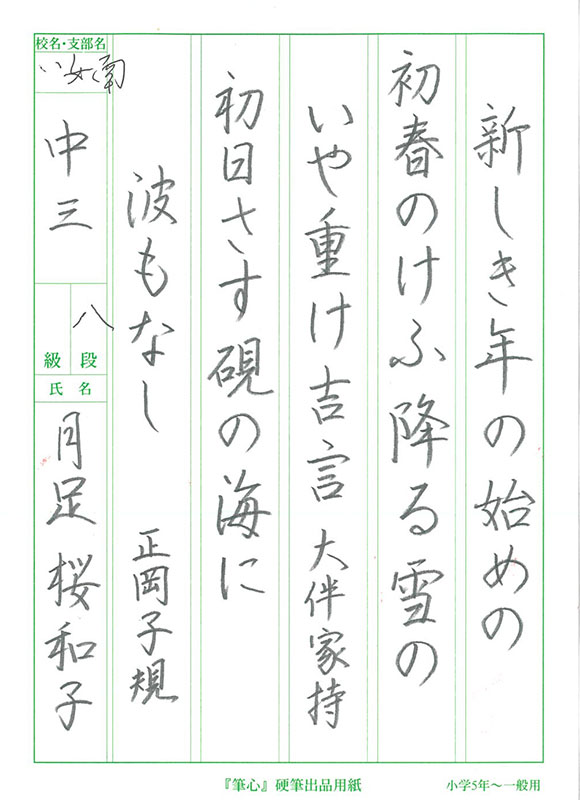 新しき年の始めの
初春のけふ降る雪の
いや重け吉言 大伴家持
初日さす硯の海に
波もなし 正岡子規
校名・支部名
八女南
中三
八
級 段
氏名
月足 桜和子
『筆心』硬筆出品用紙
小学5年～一般用